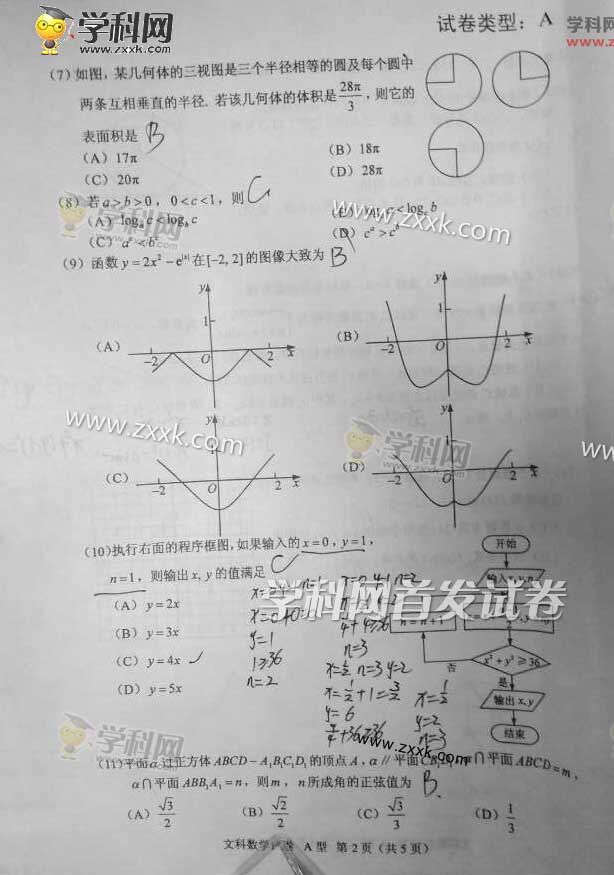 学科网
www.zxxk.com
试卷类型：A
(7) 如图，某几何体的三视图是三个半径相等的圆及每个圆中
两条互相垂直的半径. 若该几何体的体积是 28π/3，则它的
表面积是 B
(A) 17π (B) 18π
(C) 20π (D) 28π
(8) 若 a>b>0，0<c<1，则
(A) logₐc<log_b c (B) <log_c b
(C) aᶜ<bᶜ (D) cᵃ>cᵇ
www.zxxk.com
学科网
(9) 函数 y=2x²−e^|x| 在[−2, 2]的图像大致为 B
(A) y 1 −2 O 2 x
(B) y 1 −2 O 2 x
www.zxxk.com
学科网
(C) y 1 −2 O 2 x
(D) y 1 −2 O 2 x
(10) 执行右面的程序框图，如果输入的 x=0，y=1，
n=1，则输出 x, y 的值满足 C
(A) y=2x
(B) y=3x
(C) y=4x ✓
(D) y=5x
开始
输入x,y,n
n=n+1
x²+y²≥36
否
是
输出x,y
结束
学科网首发试卷
y=1
1≥36
n=2
n=3
x=1/2 n=3 y=2
x=1/2+1=3/2
y=6
x=1/2
y=2
n=3
www.zxxk.com
(11) 平面α过正方体 ABCD−A₁B₁C₁D₁ 的顶点 A，α // 平面 CB₁D₁，α∩平面 ABCD=m，
α∩平面 ABB₁A₁=n，则 m，n 所成角的正弦值为 B
(A) √3/2 (B) √2/2 (C) √3/3 (D) 1/3
文科数学试卷 A型 第2页（共5页）